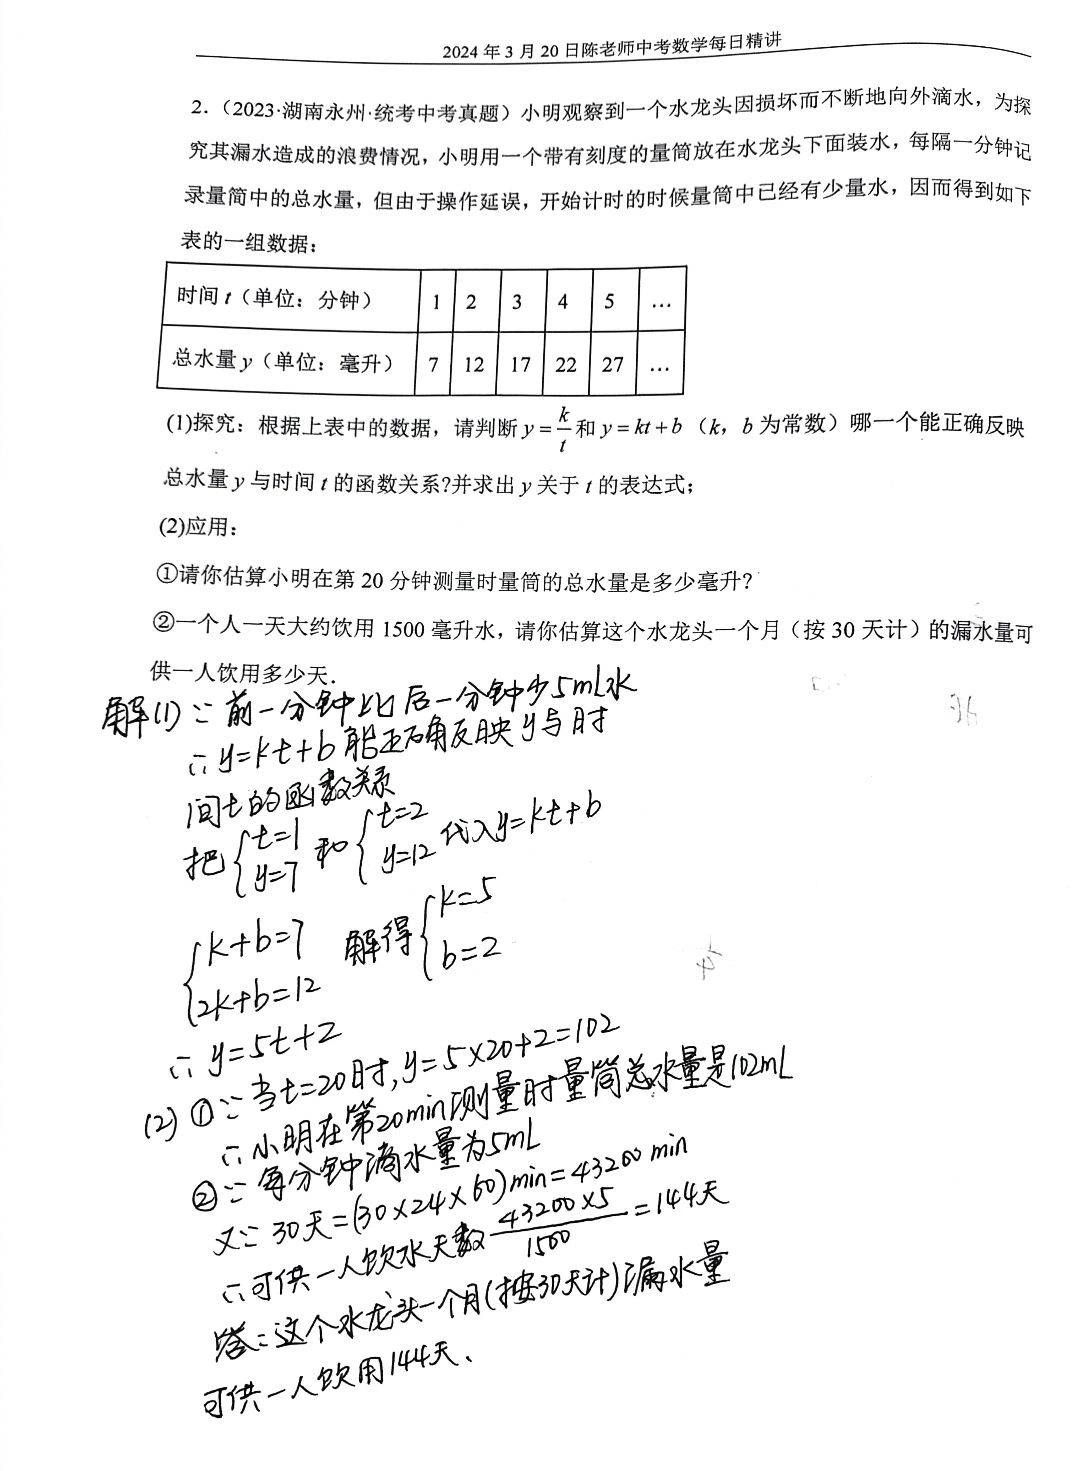 2024年3月20日陈老师中考数学每日精讲
2.（2023·湖南永州·统考中考真题）小明观察到一个水龙头因损坏而不断地向外滴水，为探
究其漏水造成的浪费情况，小明用一个带有刻度的量筒放在水龙头下面装水，每隔一分钟记
录量筒中的总水量，但由于操作延误，开始计时的时候量筒中已经有少量水，因而得到如下
表的一组数据：
时间 t（单位：分钟） 1 2 3 4 5 …
总水量 y（单位：毫升） 7 12 17 22 27 …
(1)探究：根据上表中的数据，请判断 y = k/t 和 y = kt + b（k，b 为常数）哪一个能正确反映
总水量 y 与时间 t 的函数关系?并求出 y 关于 t 的表达式；
(2)应用：
①请你估算小明在第 20 分钟测量时量筒的总水量是多少毫升?
②一个人一天大约饮用 1500 毫升水，请你估算这个水龙头一个月（按 30 天计）的漏水量可
供一人饮用多少天.
解(1)∵前一分钟比后一分钟少5mL水
∴y=kt+b能正确反映y与时
间t的函数关系
把{t=1 y=7 和{t=2 y=12 代入y=kt+b
{k+b=7 2k+b=12 解得{k=5 b=2
∴y=5t+2
(2)①∵当t=20时,y=5×20+2=102
∴小明在第20min测量时量筒总水量是102mL
②∵每分钟滴水量为5mL
又∵30天=(30×24×60)min=43200min
∴可供一人饮水天数 43200×5/1500 =144天
答:这个水龙头一个月(按30天计)漏水量
可供一人饮用144天、